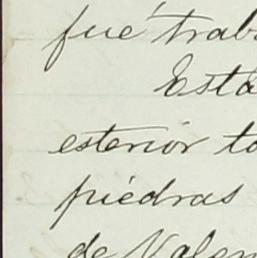 fué trab
Está
esterior to
piedras
de Valen